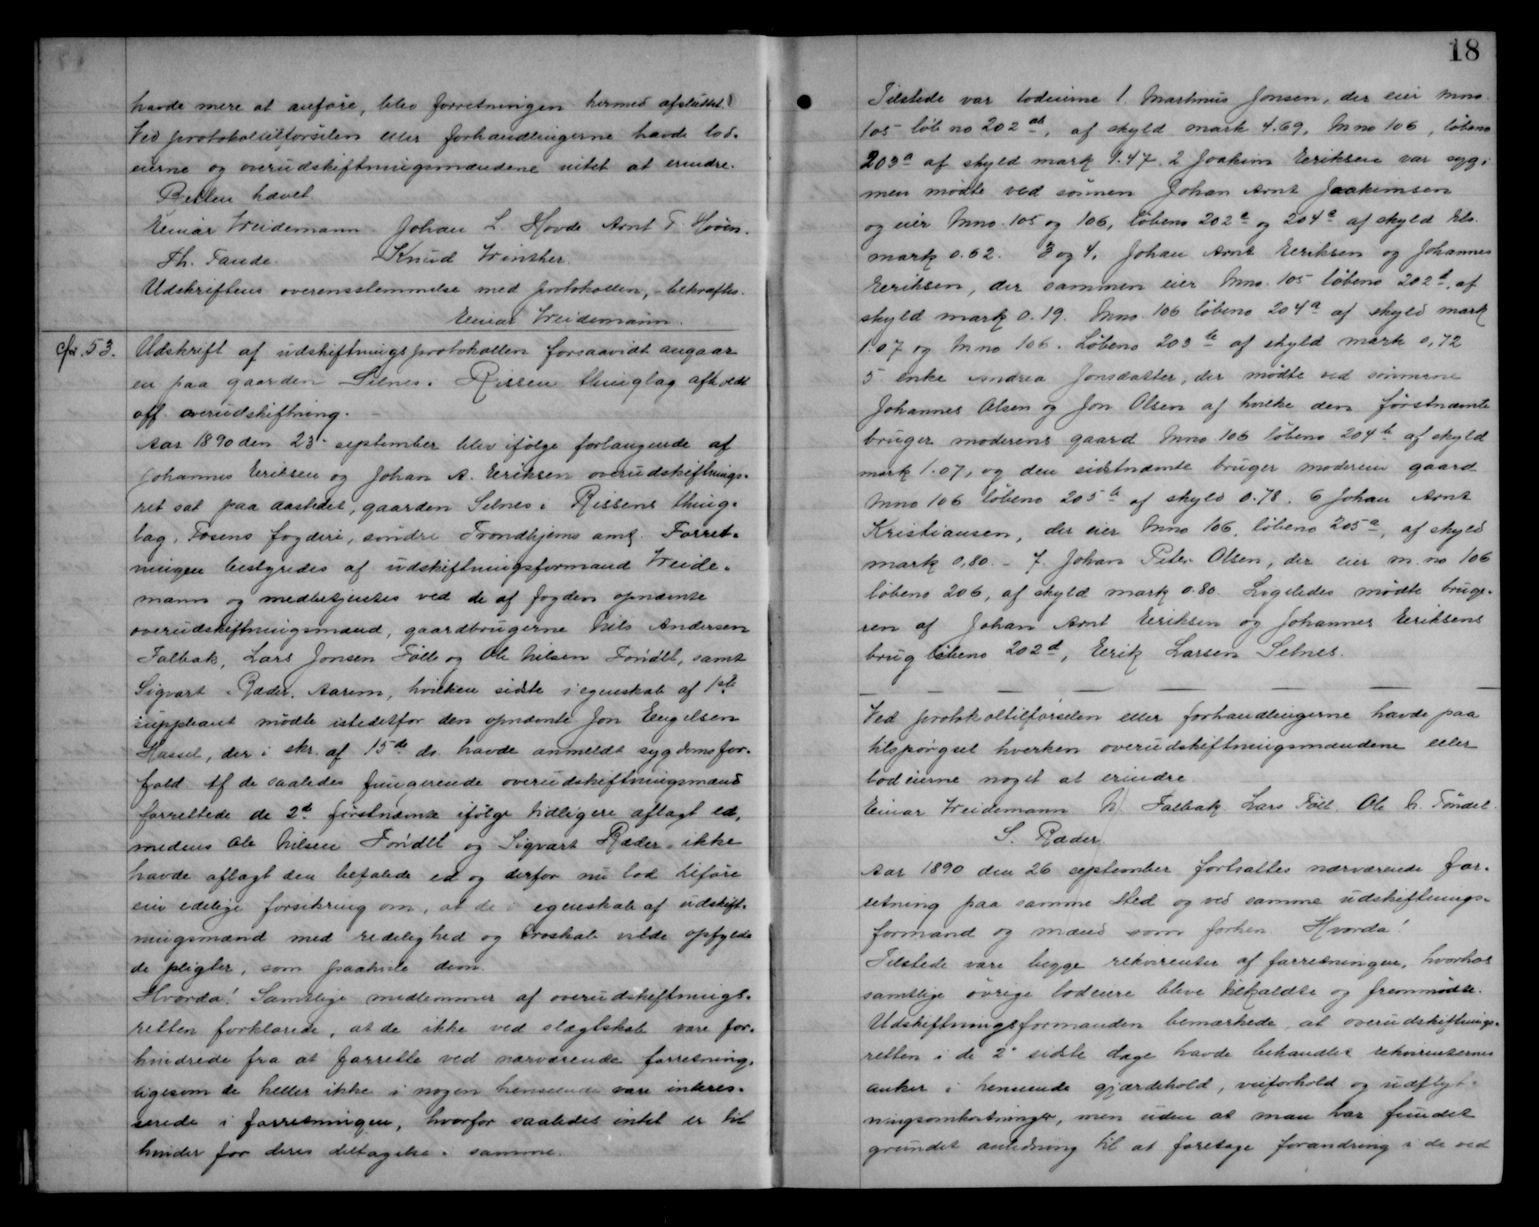 havde mere at anføre, blev forretningen hermed afsluttet.
Ved protokoltilførselen eller forhandlingerne havde lod-
eierne og overudskiftningsmændene intet at erindre.
Retten hævet.
Einar Weidemann Johan L. Hovde Arnt T. Hovin.
Th. Tande. Knud Winther
Udskriftens overensstemmelse med protokollen, bekræftes.
Einar Weidemann.
Cfr. 53. Udskrift af udskiftningsprotokollen forsaavidt angaar
en paa gaarden Selnes i Rissen thinglag afholdt
off. overudskiftning.
Aar 1890 den 23 september blev ifølge forlangende af
Johannes Eeriksen og Johan A. Eeriksen overudskiftnings-
ret sat paa aastedet, gaarden Selnes i Rissens thing-
lag, Fosens fogderi, søndre Trondhjems amt. Forret-
ningen bestyredes af udskiftningsformand Weide-
mann og medbetjentes ved de af fogden opnævnte
overudskiftningsmænd, gaardbrugerne Nils Andersen
Falbak, Lars Jonsen Føll og Ole Nelsen Tøndel, samt
Sigvart Ræder, Aarem, hvilken sidste i egenskab af 1ste
suppleant mødte istedetfor den opnævnte Jon Engelsen
Hassel, der i skr. af 15de ds. havde anmeldt sygdomsfor-
fald. Af de saaledes fungerende overudskiftningsmænd
forrettede de 2de førstnævnte ifølge tidligere aflagt ed,
medens Ole Nilsen Tøndel og Sigvart Ræder ikke
havde aflagt den befalede ed og derfor nu lod tilføre
ein edelige forsikring om, at de i egenskab af udskift-
ningsmænd med redelighed og troskab vilde opfylde
de pligter, som paahvile dem.
Hvorda! Samtlige medlemmer af overudskiftnings-
retten forklarede, at de ikke ved slægtskab vare for-
hindrede fra at forrette ved nærværende forretning,
ligesom de heller ikke i nogen henseende vare interes-
serede i forretningen, hvorfor saaledes intet er til
hinder for deres deltagelse i samme.
18
Tilstede var lodeierne 1. Marthnus Jonsen, der eier mno.
105 løb no 202 ab, af skyld mark 4.69, Mno 106, løbeno
203 a af skyld mark 4.47. 2 Joakim Eeriksen var syg,
men mødte ved sønnen Johan Arnt Joakimsen
og eier Mno. 105 og 106, løbeno 202 e og 204 a af skyld tils.
mark 0.62. 3 og 4, Johan Arnt Eeriksen og Johannes
Eeriksen, der sammen eier Mno. 105 løbeno 202 d, af
skyld mark 0.19. Mno 106 løbeno 204 a af skyld mark
1.07 og Mno 106. Løbeno 203 b af skyld mark 0,72
5 enke Andrea Jonsdatter, der mødte ved sønnerne
Johannes Olsen og Jon Olsen af hvilke den førstnævnte
bruger moderens gaard Mno 106 løbeno 204 b af skyld
mark 1.07, og den sidstnævnte bruger moderens gaard
Mno 106 løbeno 205 b af skyld 0.78. 6 Johan Arnt
Kristiansen, der eier Mno 106, løbeno 205 a, af skyld
mark 0,80. - 7. Johan Peter Olsen, der eier m. no 106
løbeno 206, af skyld mark 0.80. Ligeledes mødte bruge-
ren af Johan Arnt Eeriksen og Johannes Eeriksens
brug løbeno 202 d, Eerik Larsen Selnes.
Ved protokoltilførselen eller forhandlingerne havde paa
tilspørgsel hverken overudskiftningsmændene eller
lodeierne noget at erindre.
Einar Weidemann N. Falbak Lars Føll Ole N. Tøndel.
S. Ræder.
Aar 1890 den 26 september fortsattes nærværende for-
retning paa samme sted og ved samme udskiftnings-
formand og mænd som forhen. Hvorda!
Tilstede vare begge rekvirenter af forretningen, hvorhos
samtlige øvrige lodeiere bleve tilkaldte og fremmødte.
Udskiftningsformanden bemærkede, at overudskiftnings-
retten i de 2 sidste dage havde behandlet rekvirenternes
anker i henseende gjærdehold, veiforhold og udflyt-
ningsomkostninger, men uden at man har fundet
grundet anledning til at foretage forandring i de ved